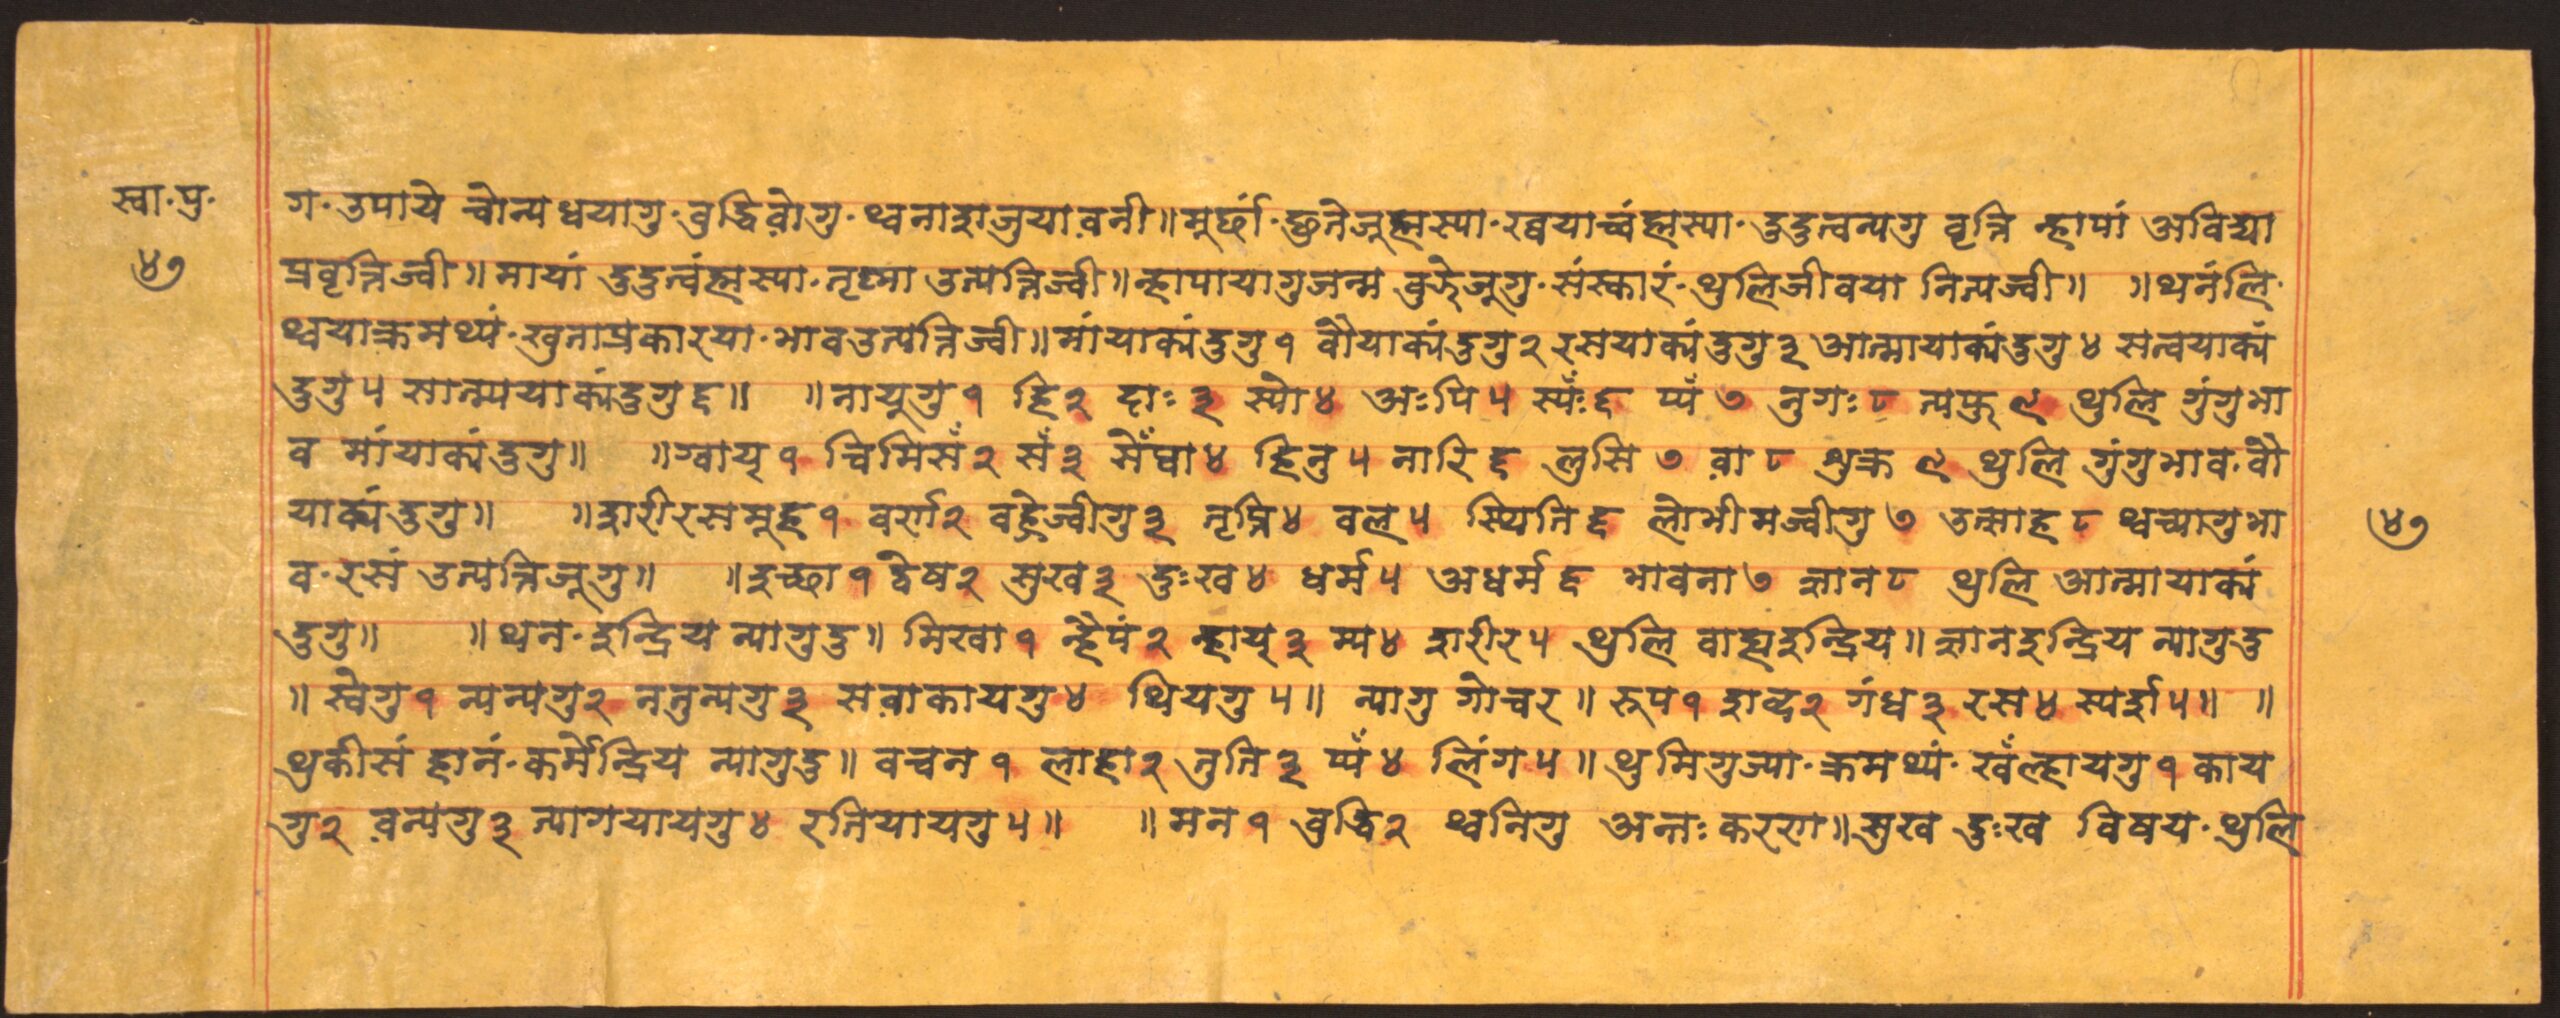 स्वा॰ पु॰
४७
ग॰ उपाये चोन्यध्वयागु॰ वुद्धिवोगु॰ थ्वनाशजुयावनी॥ मुर्छां॰ छुतेजूह्मस्या॰ रव्वयाच्वंह्मस्या॰ दुदुत्वन्यगु वृत्ति न्हापां अविद्या
प्रवृत्तिज्वी॥ मायां दुदुत्वंह्मस्या॰ तृष्णा उत्पत्तिज्वी॥ न्हापायागुजन्म वुझेजुगु॰ संस्कारं॰ थुलिजीवया नित्यज्वी॥ ॥ थनंलि॰
थ्वयाक्रमथ्यं॰ खुताप्रकारया॰ भावउत्पत्तिज्वी॥ मांयाक्यंदुगु १ वौयाक्यंदुगु २ रसयाक्यंदुगु ३ आत्मायाक्यंदुगु ४ सत्वयाक्यं
दुगु ५ सात्म्ययाक्यंदुगु ६॥ ॥ नायुगु १ हि २ दाः ३ स्यो ४ अःपि ५ स्यँः ६ प्यँ ७ नुगः ८ त्यफु ९ थुलि गुंगुभा
व मांयाक्यंदुगु॥ ॥ ग्वाय् १ चिमिसँ २ सँ ३ सेँघा ४ हिनु ५ नारि ६ लुसि ७ वा ८ शुक्र ९ थुलि गुंगुभाव॰ वौ
याक्यंदुगु॥ ॥ शरीरसमूह १ वर्ण २ वहेज्वीगु ३ तृप्ति ४ वल ५ स्थिति ६ लोभीमज्वीगु ७ उत्साह ८ थ्वच्यागुभा
व॰ रसं उत्पत्तिजूगु॥ ॥ इच्छा १ द्वेष २ सुख ३ दुःख ४ धर्म ५ अधर्म ६ भावना ७ ज्ञान ८ थुलि आत्मायाक्यं
दुगु॥ ॥ थन॰ इन्द्रिय न्यागुदु॥ मिखा १ न्हैपं २ न्हाय् ३ म्य ४ शरीर ५ थुलि वाह्यइन्द्रिय॥ ज्ञानइन्द्रिय न्यागुदु
॥ स्वेगु १ न्यन्यगु २ नतुन्यगु ३ सवाकायगु ४ थियगु ५॥ न्यागु गोचर॥ रूप १ शब्द २ गंध ३ रस ४ स्पर्श ५॥ ॥
थुकीसं हानं॰ कर्मेन्द्रिय न्यागुदु॥ वचन १ लाहा २ तुति ३ प्यँ ४ लिंग ५॥ थुमिगुज्या॰ क्रमथ्यं॰ खँल्हायगु १ काय
गु २ वन्यगु ३ त्यागयायगु ४ रतियायगु ५॥ ॥ मन १ वुद्धि २ थ्वनिगु अन्तःकरण॥ सुख दुःख विषय॰ थुलि
४७